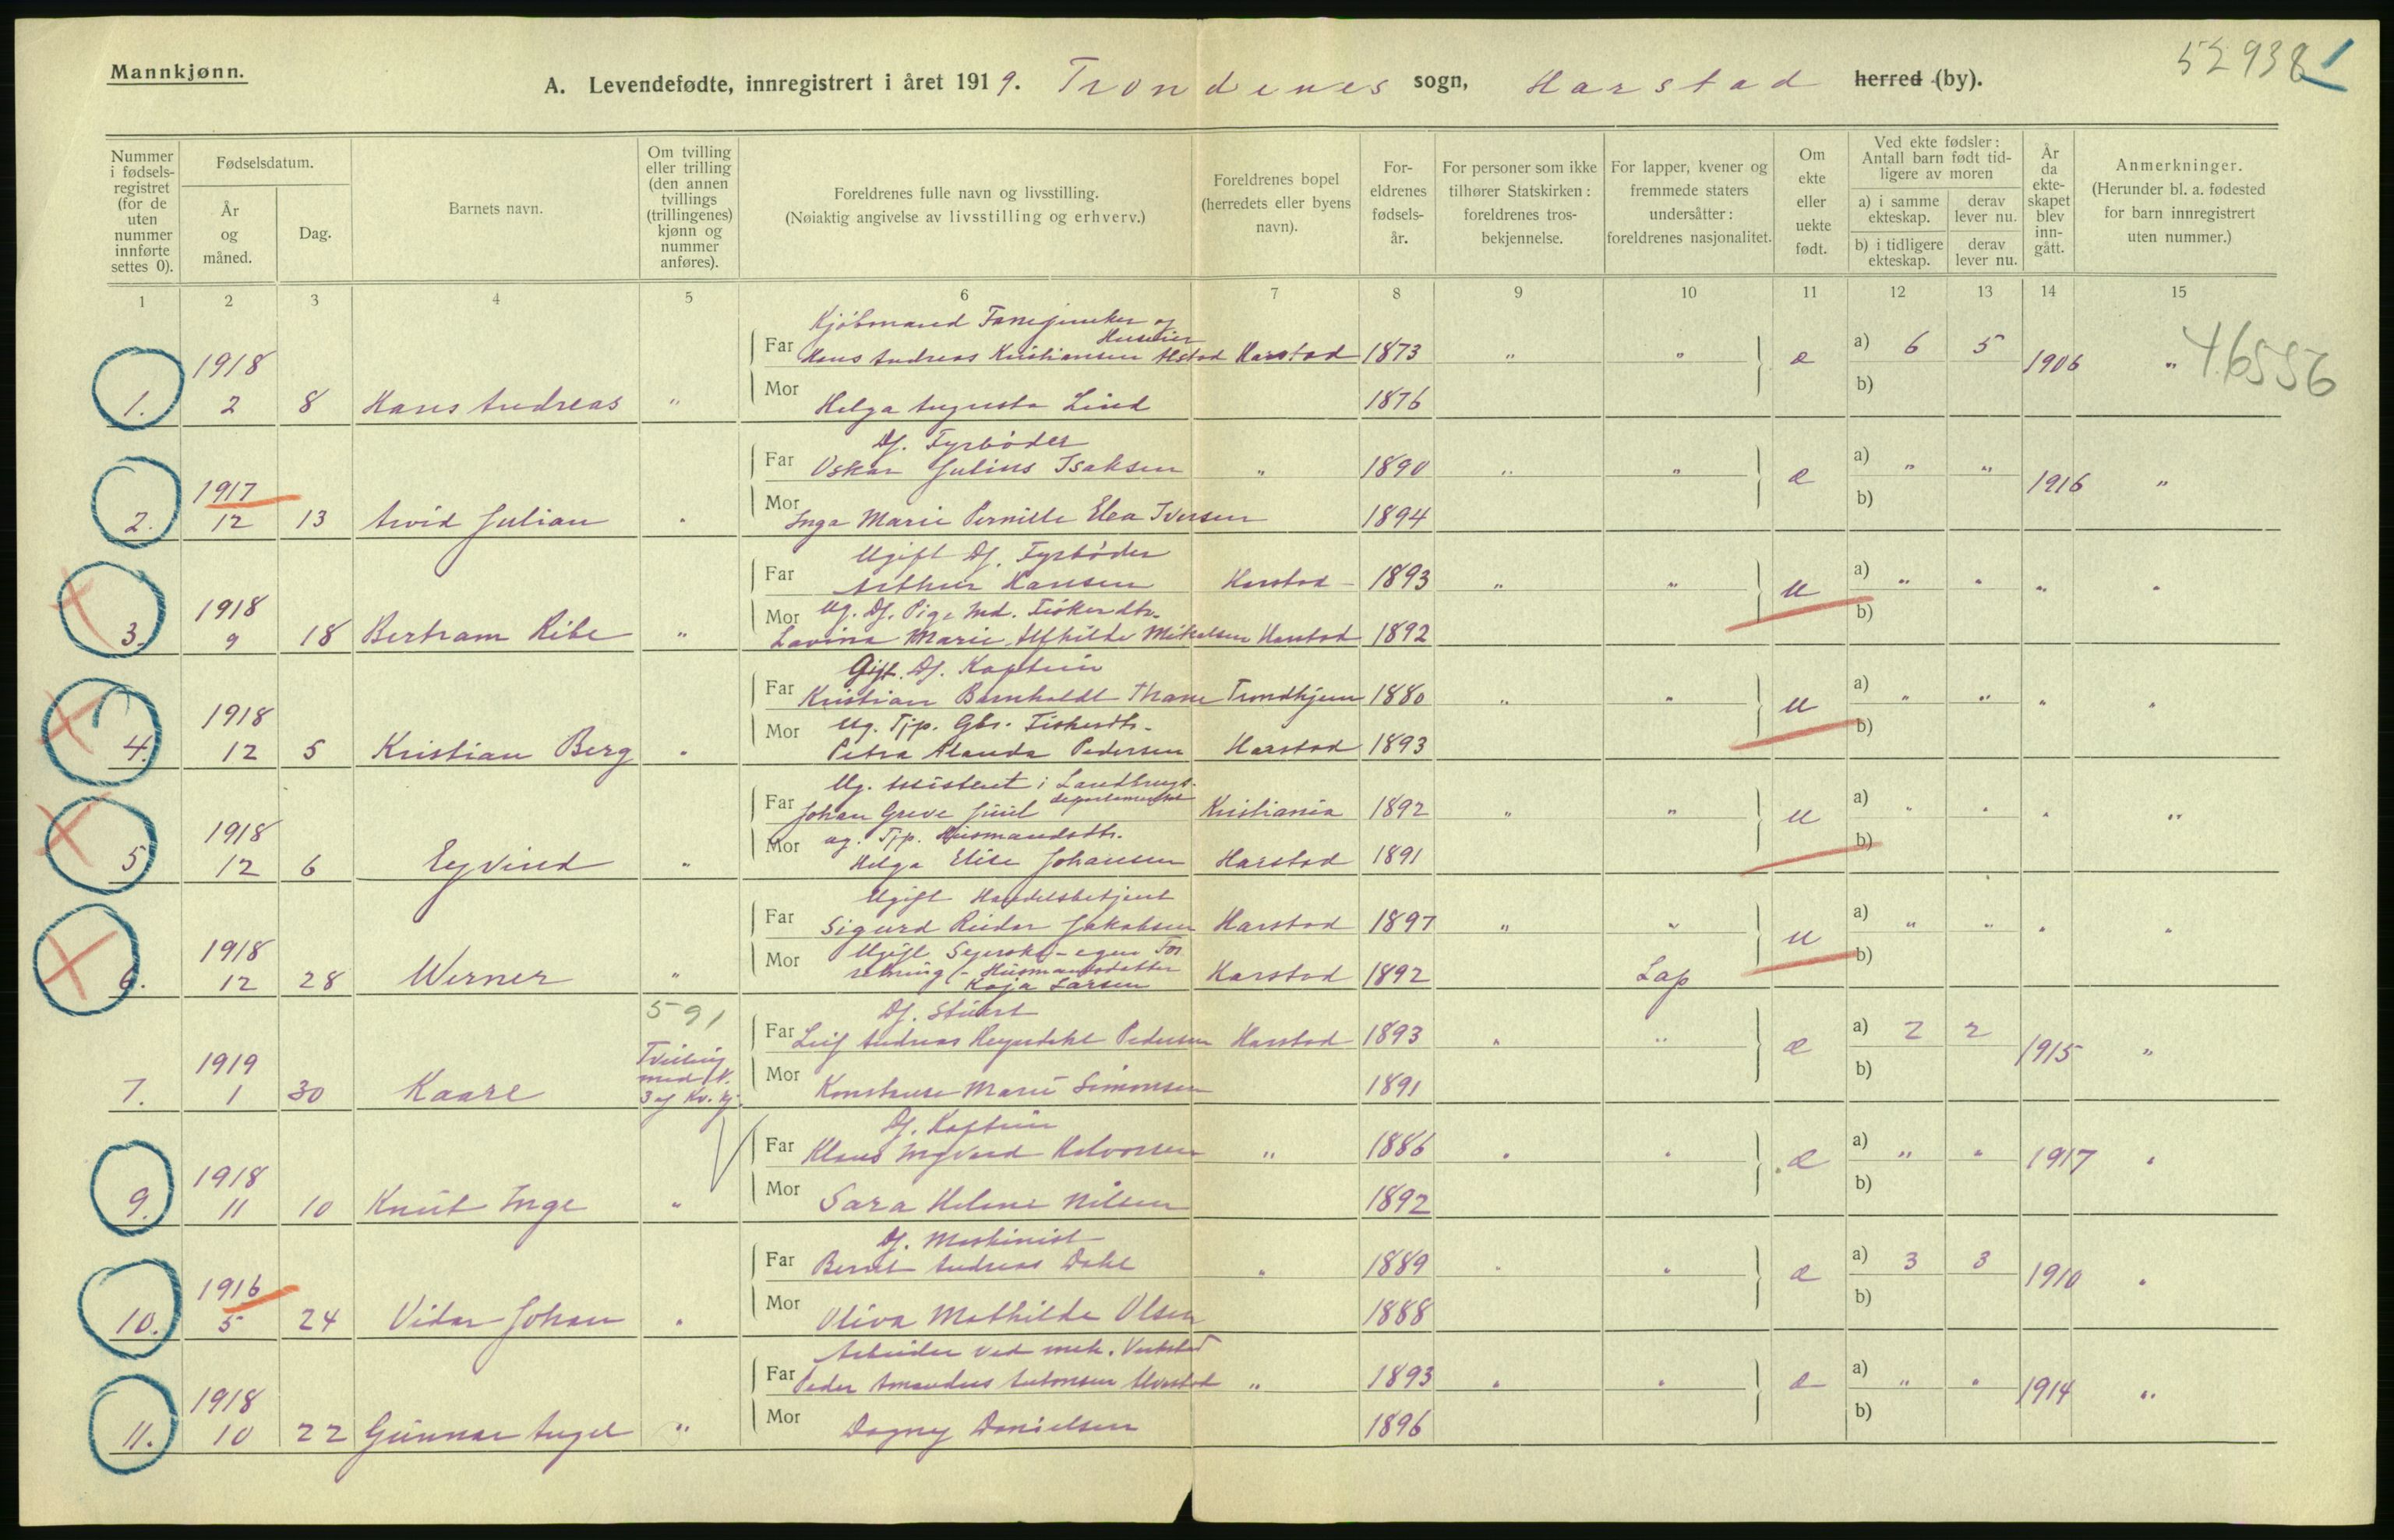 52938 1
Mannkjønn.
A. Levendefødte, innregistrert i året 1919. Trondenes sogn, Harstad herred (by).
Nummer i fødselsregistret (for de uten nummer innførte settes 0).
Fødselsdatum.
År og måned.
Dag.
Barnets navn.
Om tvilling eller trilling (den annen tvillings (trillingenes) kjønn og nummer anføres).
Foreldrenes fulle navn og livsstilling.
(Nøiaktig angivelse av livsstilling og erhverv.)
Foreldrenes bopel (herredets eller byens navn).
Foreldrenes fødselsår.
For personer som ikke tilhører Statskirken: foreldrenes trosbekjennelse.
For lapper, kvener og fremmede staters undersåtter: foreldrenes nasjonalitet.
Om ekte eller uekte født.
Ved ekte fødsler: Antall barn født tidligere av moren
a) i samme ekteskap.
derav lever nu.
b) i tidligere ekteskap.
derav lever nu.
År da ekteskapet blev inngått.
Anmerkninger.
(Herunder bl. a. fødested for barn innregistrert uten nummer.)
1 2 3 4 5 6 7 8 9 10 11 12 13 14 15
Kjøbmand og Huseier
Far Hans Andreas Kristiansen Harstad 1873 " " æ a) 6 5 1906 " 46556
1. 1918 2 8 Hans Andreas "
Mor Helga Augusta Lind 1876 b)
Df. Fyrbøder
Far Oskar Julius Isaksen " 1890 " " æ a) " " 1916 "
2. 1917 12 13 Arvid Julian "
Mor Inga Marie Pernille Elea Iversen 1894 b)
Ugift Df. Fyrbøder
Far Arthur Hansen Harstad 1893 " " u a) " " " "
3. 1918 9 18 Bertram Ribe "
Mor Ug. Df. Pige Ind. Fiskerdtr.
Lovina Marie Alfhilde Mikalsen Harstad 1892 b)
Gift. Df. Kaptein
Far Kristian Bernholdt Thane Trondhjem 1880 " " u a) " " " "
4. 1918 12 5 Kristian Berg "
Mor Ug. Tjp. Gbr. Fiskerdtr.
Petra Pedersen Harstad 1893 b)
Ug. Assistent i Landbrugsdepartementet
Far Johan Greve Juul Kristiania 1892 " " u a) " " " "
5 1918 12 6 Eyvind "
Mor ug. Tjp. Husmandsdtr.
Helga Elise Johansen Harstad 1891 b)
Ugift Handelsbetjent
Far Sigurd Reidar Jakobsen Harstad 1897 " " u a) " " " "
6. 1918 12 28 Werner "
Mor Ugift Syerske - egen Forretning - Husmandsdatter
Kaja Larsen Harstad 1892 Lap b)
591
Df. Stuert
Far Leif Andreas Heyerdahl Pedersen Harstad 1893 " " æ a) 2 2 1915 "
7. 1919 1 30 Kaare Tvilling med N. 3 af Kv. kj.
Mor Konstanse Marie Simonsen 1891 b)
Df. Kaptein
Far Klaus Ingvard Halvorsen " 1886 " " æ a) " " 1917 "
9. 1918 11 10 Knut Inge "
Mor Sara Helene Nilsen 1892 b)
Df. Maskinist
Far Bernt Andreas Dahl " 1889 " " æ a) 3 3 1910 "
10. 1916 5 24 Vidar Johan "
Mor Oliva Mathilde Olsen 1888 b)
Arbeider ved mek. Verksted
Far Peder Amandus Antonsen " 1893 " " æ a) " " 1914 "
11. 1918 10 22 Gunnar "
Mor Dagny Danielsen 1896 b)